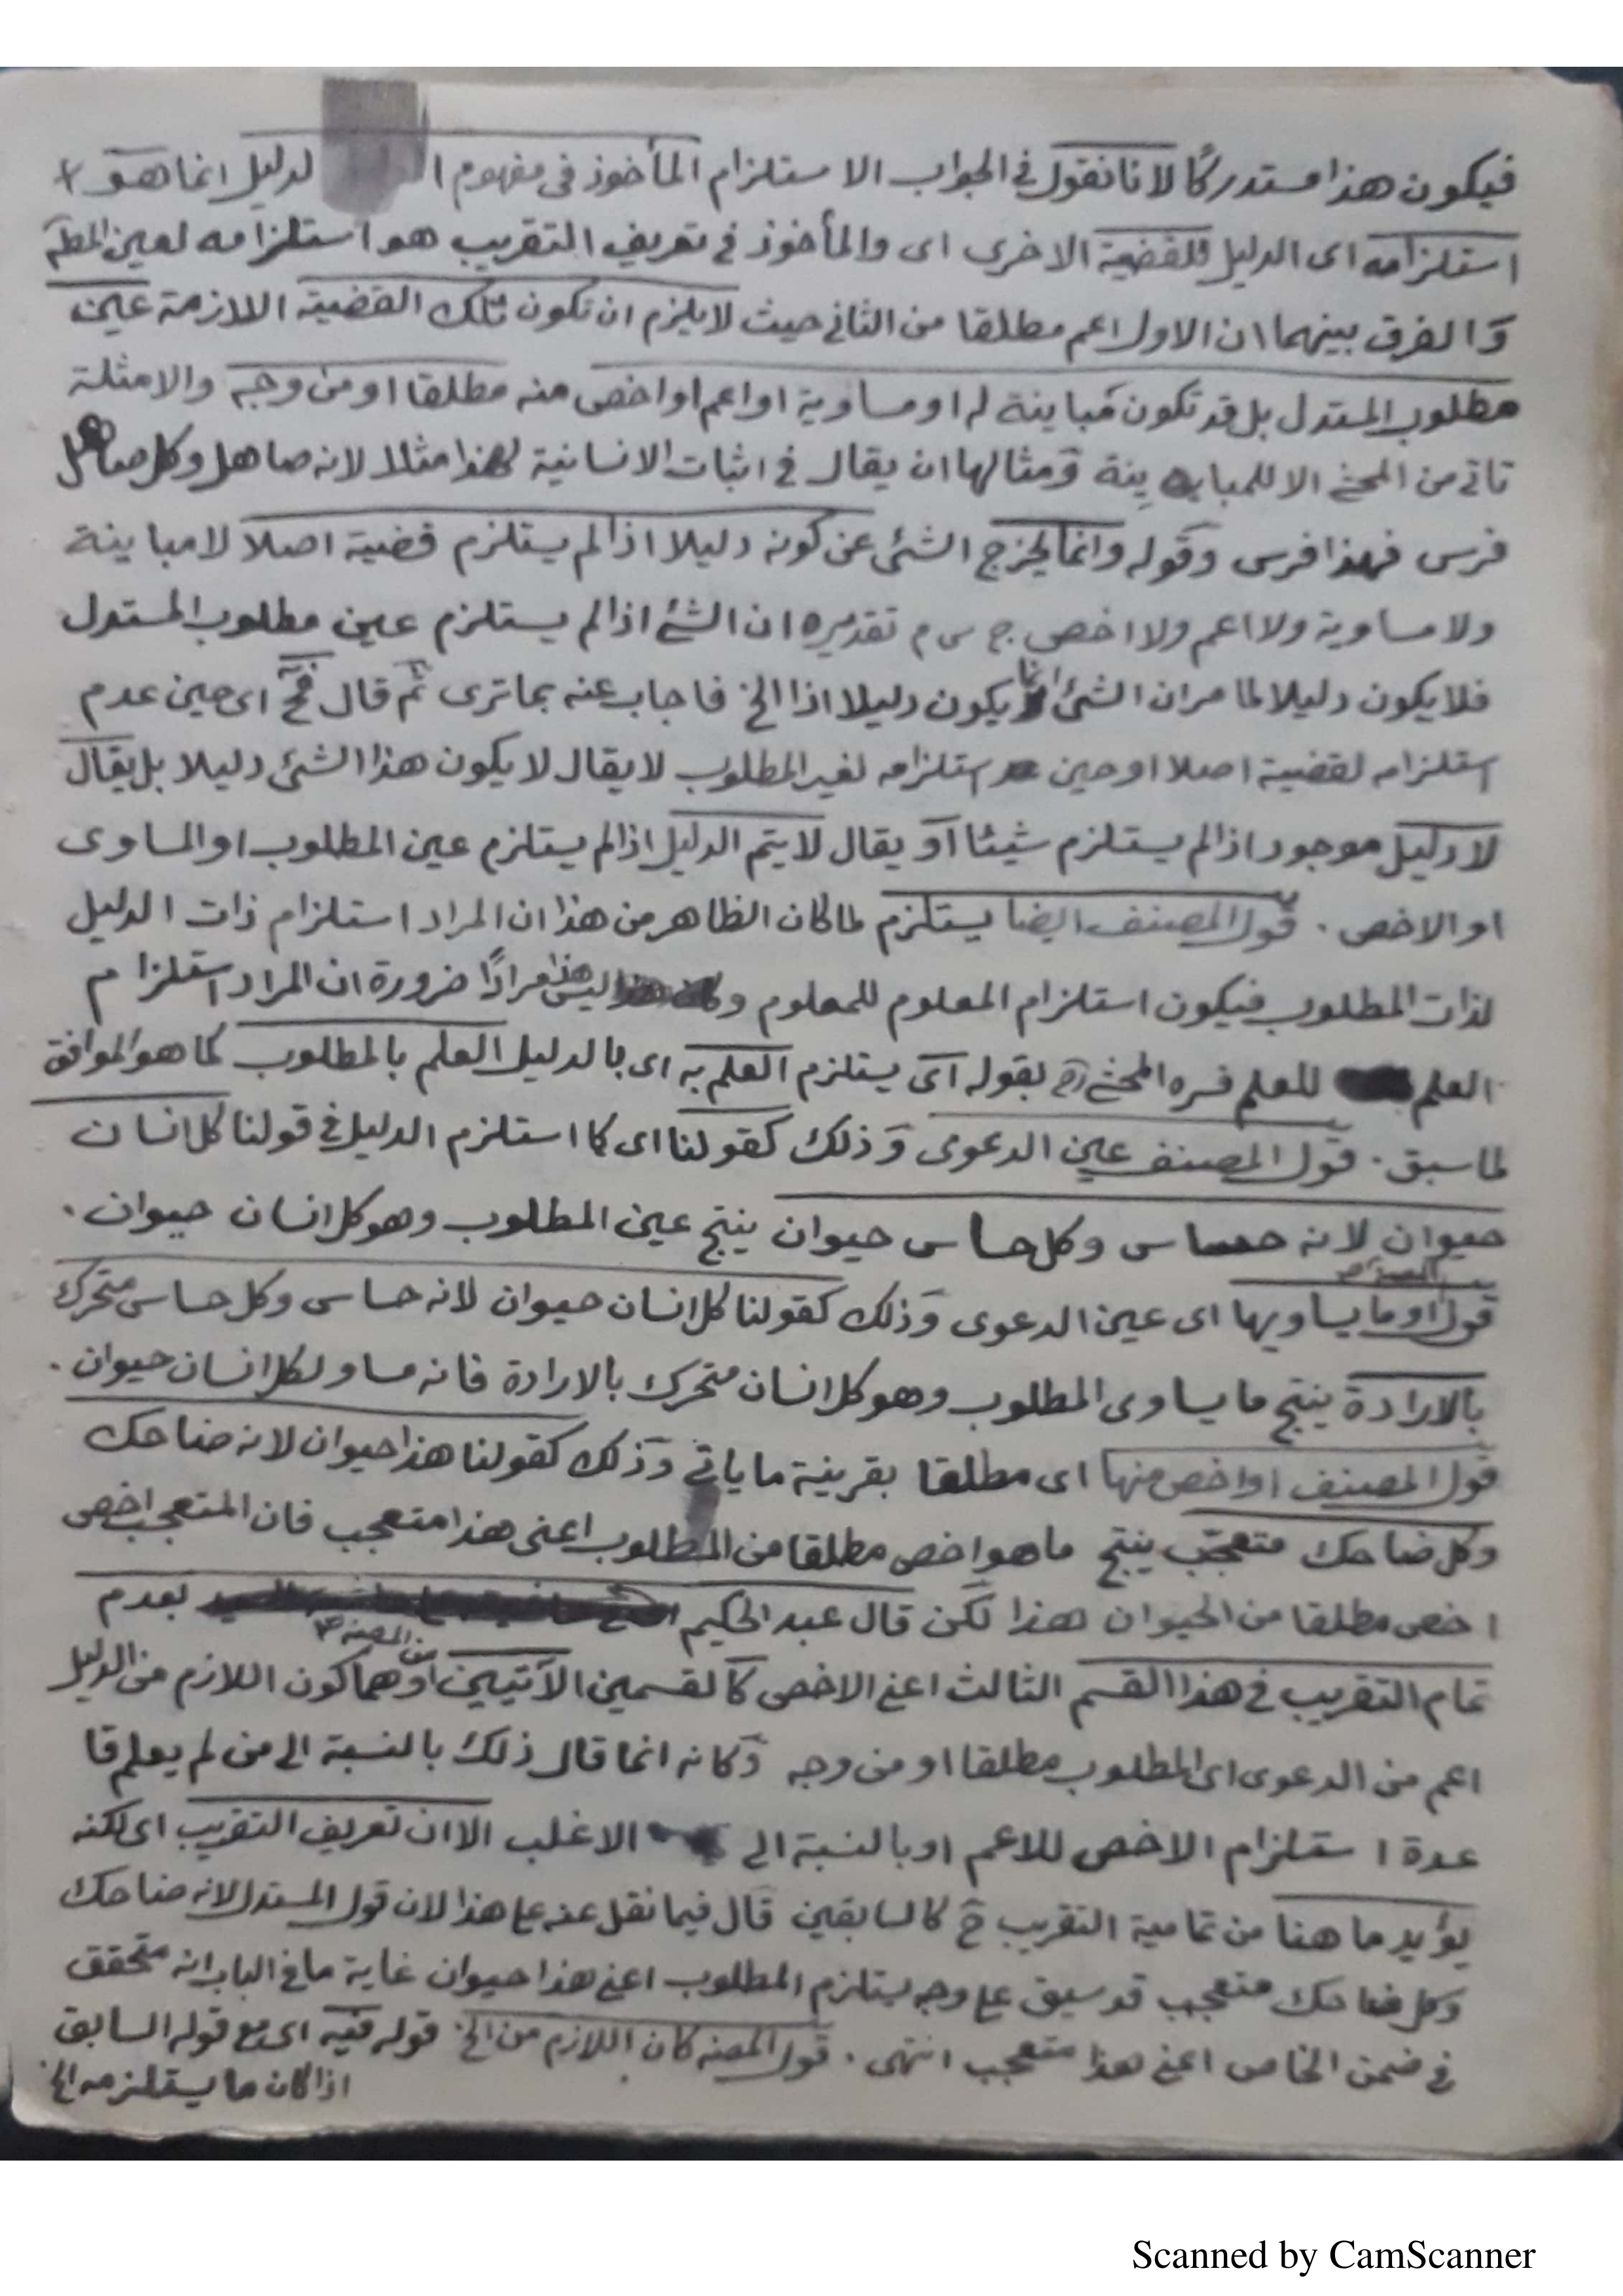 فيكون هذا مستدركًا لانا نقول في الجواب الاستلزام المأخوذ في مفهوم ا لدليل انما هو
استلزامه اى الدليل للقضية الاخرى اى والمأخوذ في تعريف التقريب هو استلزامه لعين المط
والفرق بينهما ان الاول اعم مطلقا من الثاني حيث لا يلزم ان تكون تلك القضية اللازمة عين
مطلوب المستدل بل قد تكون مباينة له او مساوية او اعم او اخص منه مطلقا او من وجه والامثلة
تاتي من المحشي الا للمباينة ومثالها ان يقال في اثبات الانسانية لهذا مثلا لانه صاهل وكل صاهل
فرس فهذا فرس وقوله وانما يخرج الشئ عن كونه دليلا اذا لم يستلزم قضية اصلا لا مباينة
ولا مساوية ولا اعم ولا اخص ج س م تقديره ان الشئ اذا لم يستلزم عين مطلوب المستدل
فلا يكون دليلا لما مر ان الشئ انما يكون دليلا اذا الخ فاجاب عنه بما ترى ثم قال فح اى حين عدم
استلزامه لقضية اصلا او حين استلزامه لغير المطلوب لا يقال لا يكون هذا الشئ دليلا بل يقال
لا دليل موجود اذا لم يستلزم شيئا أو يقال لا يتم الدليل اذا لم يستلزم عين المطلوب او المساوى
او الاخص . قول المصنف ايضا يستلزم لما كان الظاهر من هذا ان المراد استلزام ذات الدليل
لذات المطلوب فيكون استلزام المعلوم للمعلوم و ليس هذا مرادًا ضرورة ان المراد استلزام
العلم للعلم فسره المحشي بقوله اى يستلزم العلم به اى بالدليل العلم بالمطلوب كما هو الموافق
لما سبق . قول المصنف عين الدعوى وذلك كقولنا اى كما استلزم الدليل في قولنا كل انسان
حيوان لانه حساس وكل حساس حيوان ينتج عين المطلوب وهو كل انسان حيوان .
قول المصنف او ما يساويها اى عين الدعوى وذلك كقولنا كل انسان حيوان لانه حساس وكل حساس متحرك
بالارادة ينتج ما يساوى المطلوب وهو كل انسان متحرك بالارادة فانه مساو لكل انسان حيوان .
قول المصنف او اخص منها اى مطلقا بقرينة ما ياتي وذلك كقولنا هذا حيوان لانه ضاحك
وكل ضاحك متعجب ينتج ما هو اخص مطلقا من المطلوب اعنى هذا متعجب فان المتعجب اخص
اخص مطلقا من الحيوان هذا لكن قال عبد الحكيم بعدم
تمام التقريب في هذا القسم الثالث اعني الاخص كالقسمين الآتيين من المصنف وهما كون اللازم من الدليل
اعم من الدعوى اى المطلوب مطلقا او من وجه وكانه انما قال ذلك بالنسبة الى من لم يعلم قا
عدة استلزام الاخص للاعم او بالنسبة الى الاغلب الا ان تعريف التقريب اى لكنه
يؤيد ما هنا من تمامية التقريب ح كالسابقين قال فيما نقل عنه على هذا لان قول المستدل لانه ضاحك
وكل ضاحك متعجب قد سيق على وجه يستلزم المطلوب اعني هذا حيوان غاية ما في الباب انه متحقق
في ضمن الخاص اعني هذا متعجب انتهى . قول المصنف كان اللازم من الخ قوله فيه اى مع قوله السابق
اذا كان ما يستلزمه الخ
Scanned by CamScanner